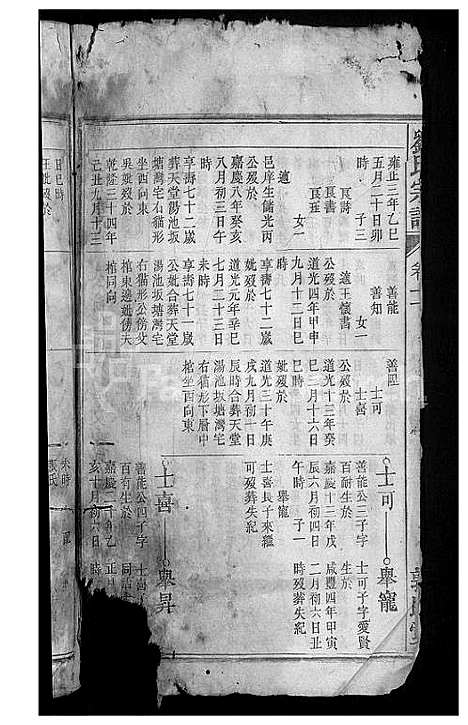 劉氏宗譜
卷二
雍正三年乙巳
五月二十日卯
時 子三
良詩
良書
良臣
女一
適
邑庠生儲光丙
公歿於
嘉慶八年癸亥
八月初三日午
時
享壽七十二歲
葬天堂湯池坂
塘灣宅右貓形
坐西向東
吳妣歿於
乾隆三十四年
己丑九月十三
善能
善知
女一
適王懷書
公歿於
道光四年甲申
九月十二日巳
時
享壽七十二歲
妣歿於
道光元年辛巳
七月二十三日
未時
享壽七十一歲
公妣合葬天堂
湯池坂塘灣宅
右貓形公傍父
棺東邊妣傍夫
棺同向
善
士可
士喬
公歿於
道光十三年癸
巳三月十六日
巳時
妣歿於
道光三十年庚
戌九月初十日
辰時合葬天堂
湯池坂塘灣宅
右貓形下層中
棺坐西向東
士可
舉寵
善能公三子字
百耐生於
嘉慶十三年戊
辰六月初四日
午時 子一
舉寵
士喜長子來繼
可歿葬失紀
士可子字愛賢
生於
咸豐四年甲寅
二月初六日丑
時歿葬失紀
士喜
舉昇
善能公四子字
百有生於
嘉慶二十年乙
亥十月初六日
未時
士喬
同治
正月
時
日巳時
王妣歿於